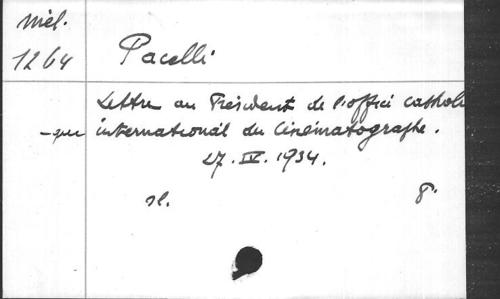 Miel.
1264
Pacelli
Lettre au Président de l'offici catholi
-que international du Cinématographe.
27. IV. 1934.
sl.
8°